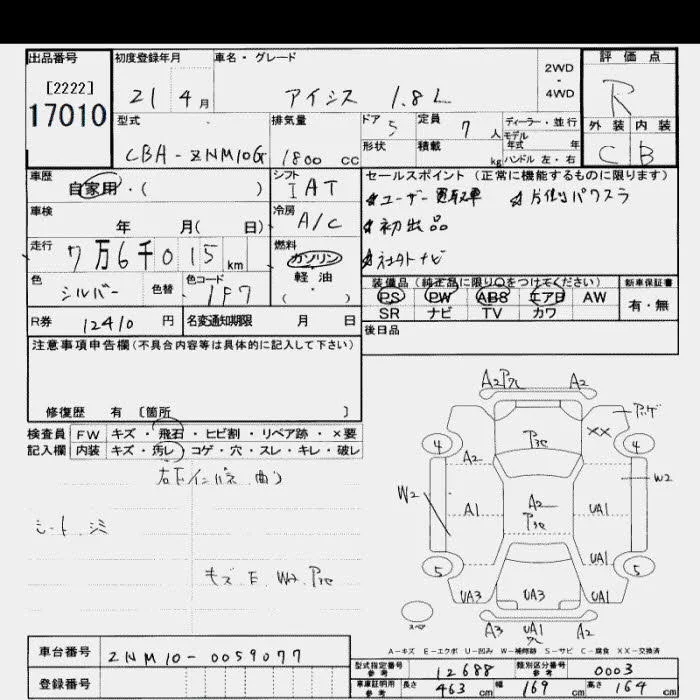 出品番号
[2222]
17010
初度登録年月
21年 4月
車名・グレード
アイシス 1.8L
2WD
・
4WD
評価点
R
外装 内装
C B
型式
CBA-ZNM10G
排気量
1800 cc
ドア 5
定員 7 人
ディーラー・並行
モデル
年式 年
形状
積載 kg
ハンドル 左・右
車歴
自家用・( )
シフト
I AT
車検
年 月( 日)
冷房
A/C
走行
7万6千015 km
燃料
ガソリン
軽・油
( ・ )
色
シルバー
色替
色コード
1F7
R券 12410 円
名変通知期限 月 日
セールスポイント(正常に機能するものに限ります)
ユーザー買取車 片側パワスラ
初出品
社外ナビ
装備品(純正品に限り○をつけてください)
PS PW ABS エアB AW
SR ナビ TV カワ
新車保証書
有・無
後日品
注意事項申告欄(不具合内容等は具体的に記入して下さい)
修復歴 有 〔箇所 〕
検査員
記入欄
FW キズ・飛石・ヒビ割・リペア跡・×要
内装 キズ・汚レ・コゲ・穴・スレ・キレ・破レ
シート
キズ E W2
A2 A2
4 XX 4
A2
W2 W2
A1 A2 UA1
UA1
5 5
UA3 UA3 UA1
A3 UA1 A2
スペア
A-キズ E-エクボ U-凹み W-補修跡 S-サビ C-腐食 XX-交換済
車台番号 ZNM10-0059077
登録番号
型式指定番号
参考
12688
類別区分番号
参考
0003
車庫証明用
参考
長さ 463 cm 幅 169 cm 高さ 164 cm